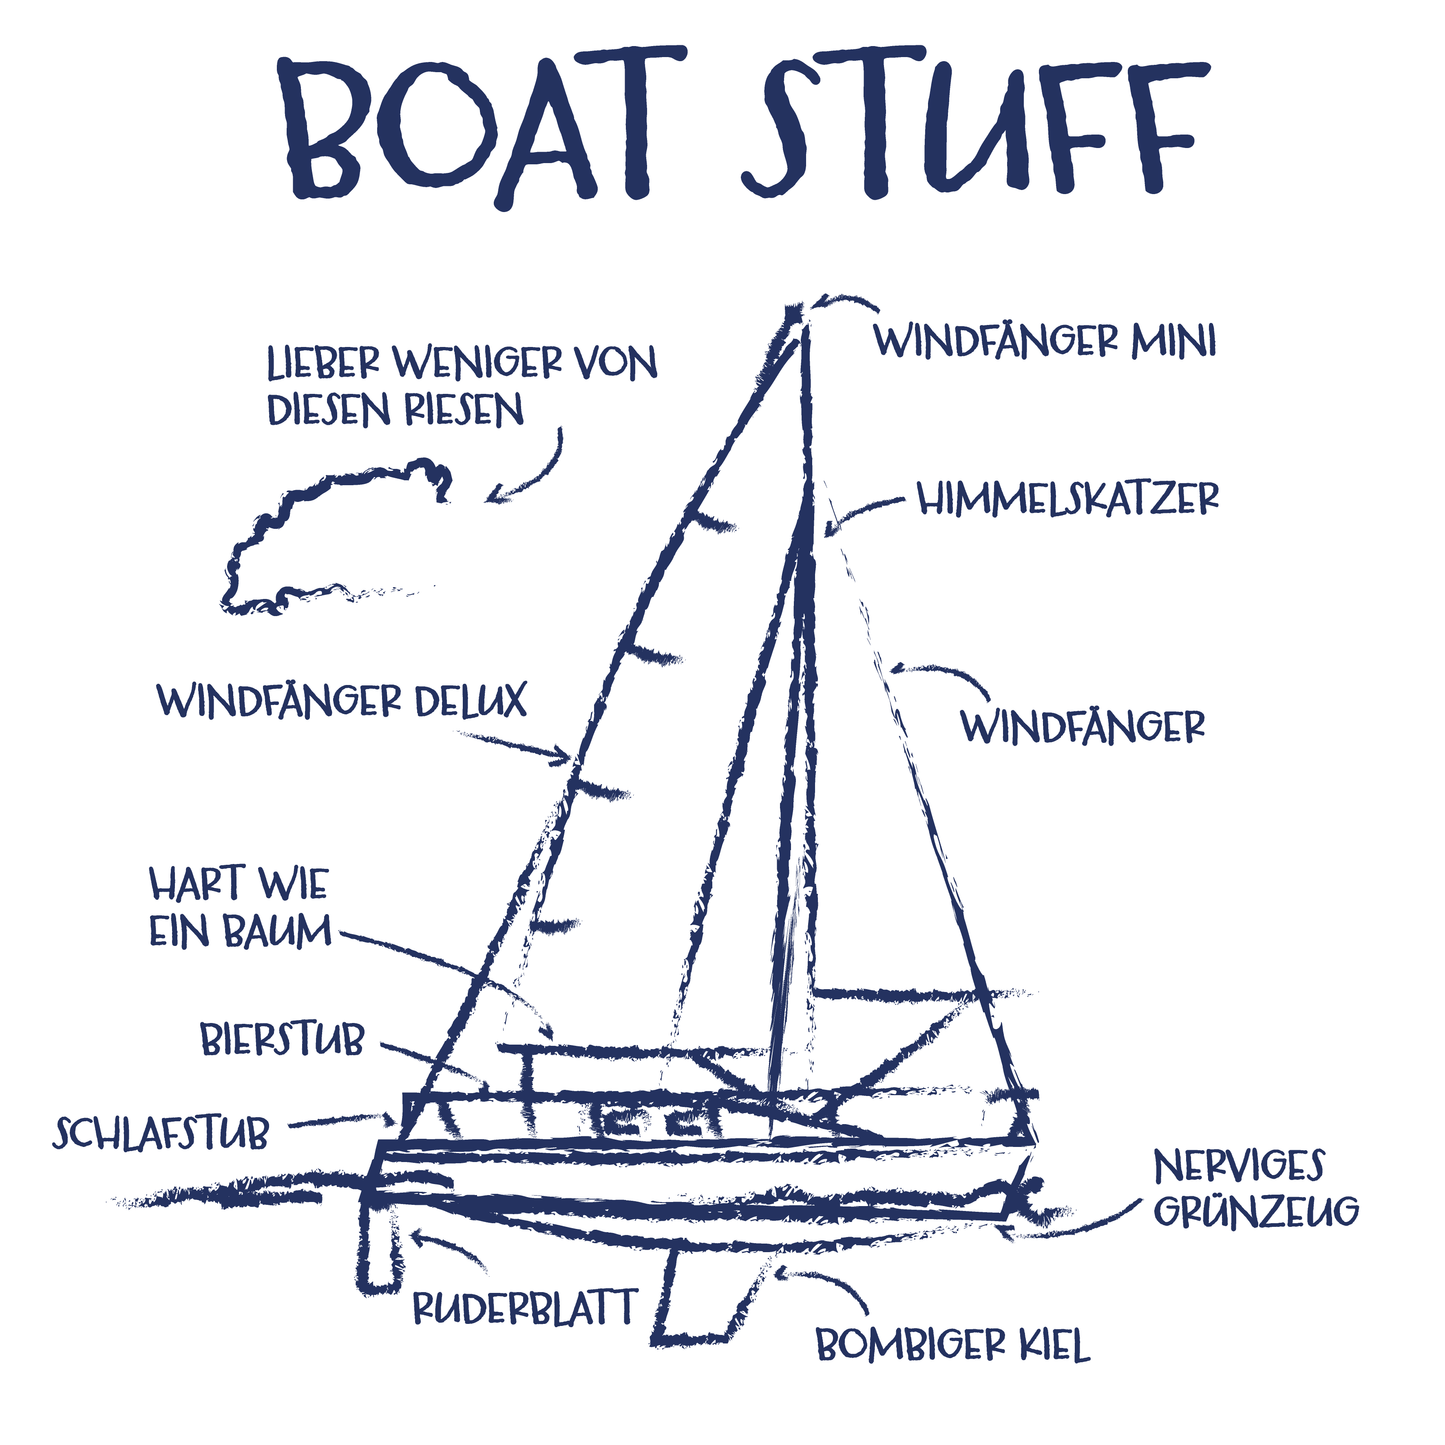 BOAT STUFF
WINDFÄNGER MINI
LIEBER WENIGER VON
DIESEN RIESEN
HIMMELSKATZER
WINDFÄNGER DELUX
WINDFÄNGER
HART WIE
EIN BAUM
BIERSTUB
SCHLAFSTUB
NERVIGES
GRÜNZEUG
RUDERBLATT
BOMBIGER KIEL